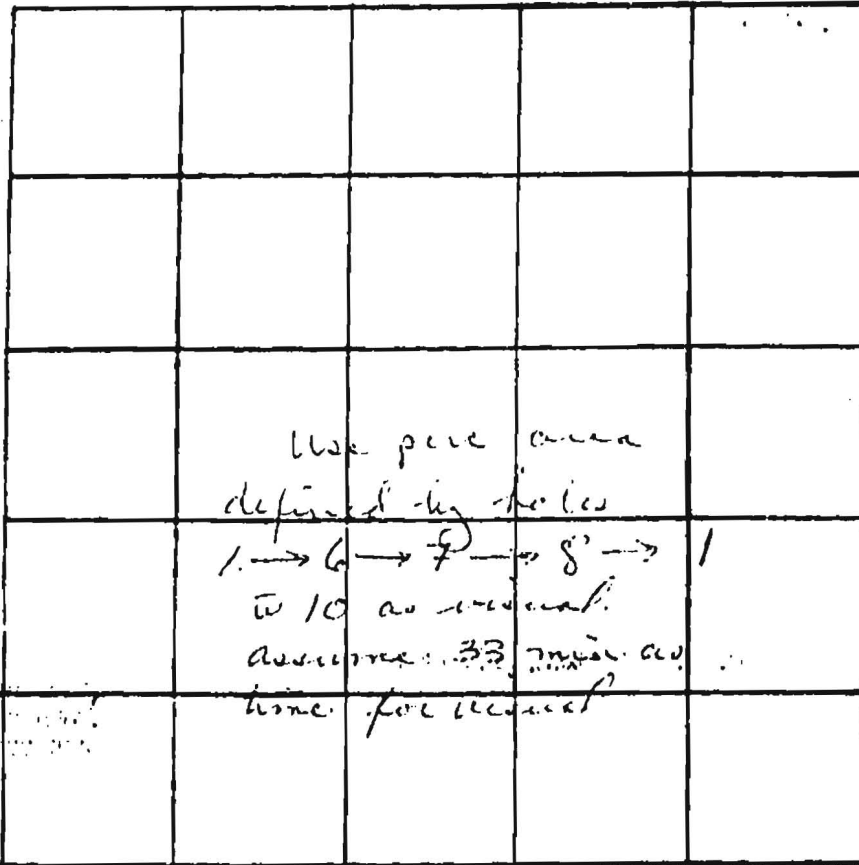 Use pure area
defined by holes
1 → 6 → 7 → 8 → 1
w 10 as usual.
assume 33 min. as
time for usual